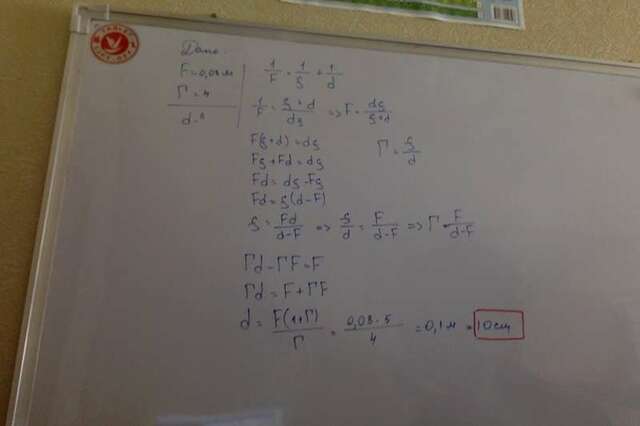 Дано:
F = 0,08 м
Г = 4
d - ?
1/F = 1/f + 1/d
1/F = (f + d)/(df) => F = df/(f+d)
F(f+d) = df
Г = f/d
Ff + Fd = df
Fd = df - Ff
Fd = f(d-F)
f = Fd/(d-F) => f/d = F/(d-F) => Г = F/(d-F)
Гd - ГF = F
Гd = F + ГF
d = F(1+Г)/Г = 0,08·5/4 = 0,1 м = 10 см